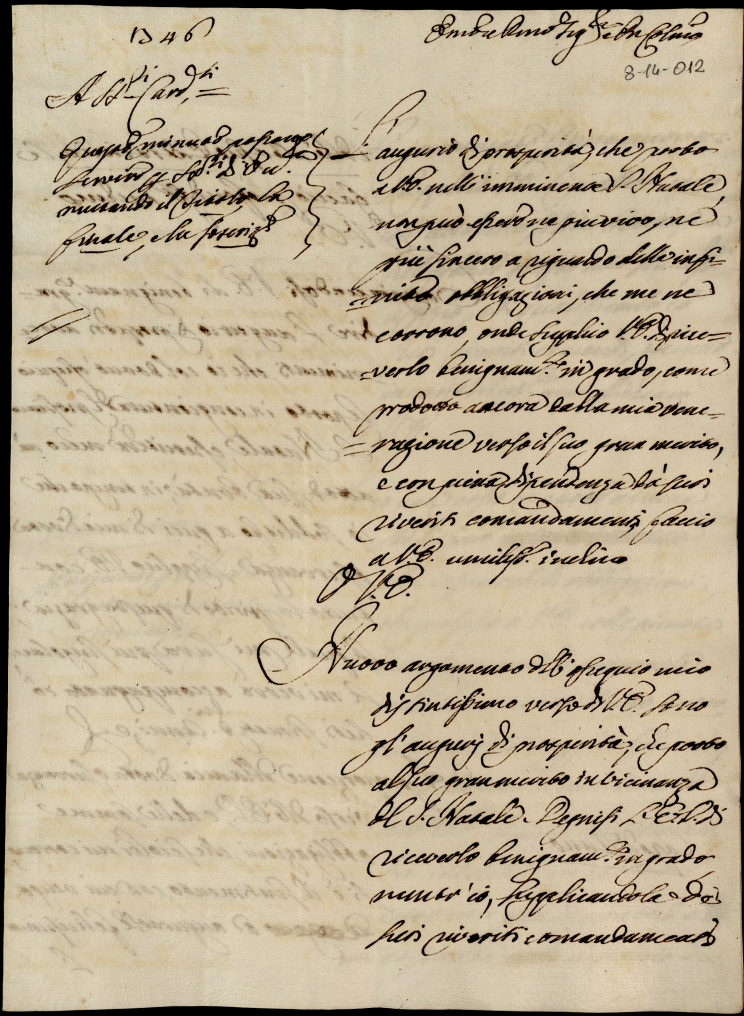 1746
Em̃o e Rmo Sig.re
8-14-012
A S.ri Card.li
Queste minute possono
servire p
mutando il titolo, la
finale, e la
L'augurio di prosperità, che porto
a V.E. nell'imminente S. Natale
non può essere ne più vivo, ne
più sincero a riguardo delle infi-
nite obbligazioni, che me ne
corrono, onde supplico V.E. di rice-
verlo benignam.te in grado, come
prodotto ancora dalla mia vene-
razione verso il suo gran merito,
e con piena dipendenza da' suoi
riveriti comandamenti faccio
a V.E. umiliss.o inchino
D V.E.
Nuovo argomento dell'ossequio mio
distintissimo verso di V.E. sono
gl'augurj di prosperità, che porto
al suo gran merito in vicinanza
del S. Natale. Degnisi l'E.V. di
riceverlo benignam.te in grado
mentr'io, supplicandola de'
suoi riveriti comandamenti